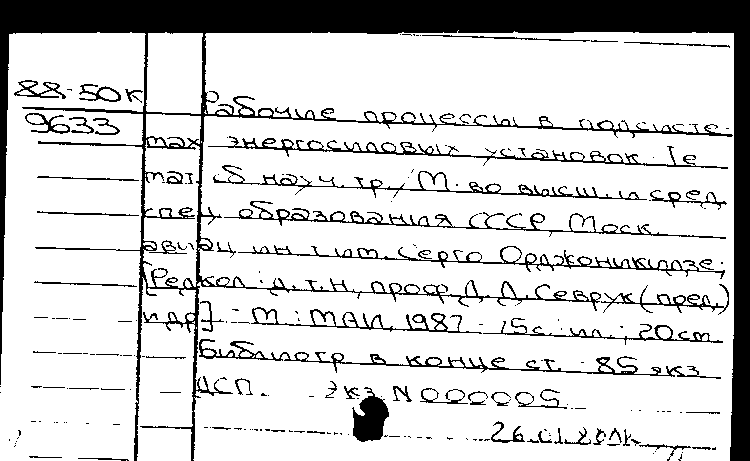 88-50к Рабочие процессы в подсисте-
9633 мах энергосиловых установок: Те
мат. сб науч. тр. / М-во высш. и сред.
спец. образования СССР, Моск.
авиац. ин-т им. Серго Орджоникидзе;
[Редкол.: д.т.н., проф. Д.Д. Севрук (пред.)
и др.] - М.: МАИ, 1987 - 75с.: ил.; 20 см.
Библиогр в конце ст. 85 экз
ДСП. Экз N 000005